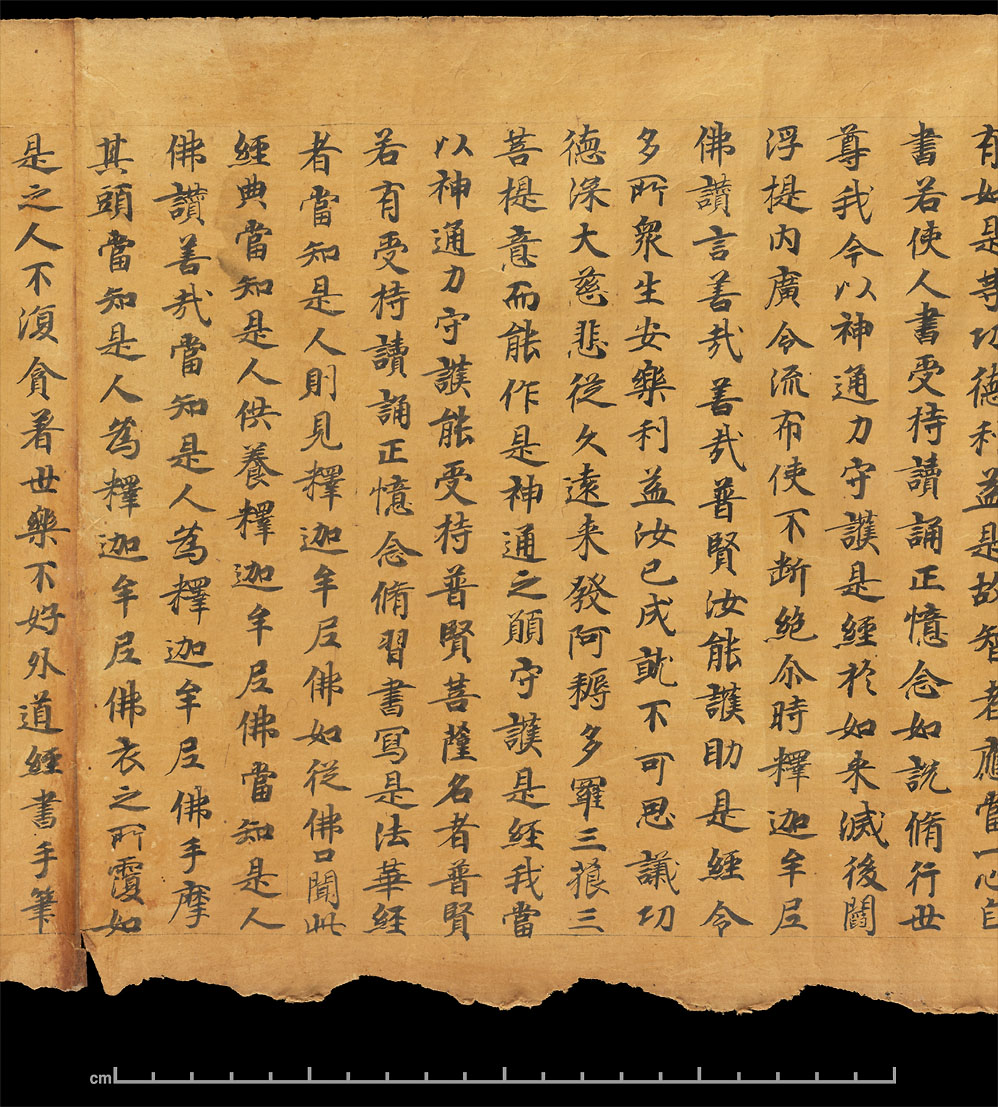 有如是等功德利益是故智者應當一心自
書若使人書受持讀誦正憶念如說脩行世
尊我今以神通力守護是經於如来滅後閻
浮提内廣令流布使不断絶尒時釋迦牟尼
佛讃言善哉善哉普賢汝能護助是經令
多所衆生安樂利益汝已成就不可思議功
德深大慈悲從久遠来發阿耨多羅三藐三
菩提意而能作是神通之願守護是經我當
以神通力守護能受持普賢菩薩名者普賢
若有受持讀誦正憶念脩習書寫是法華經
者當知是人則見釋迦牟尼佛如從佛口聞此
經典當知是人供養釋迦牟尼佛當知是人
佛讃善哉當知是人為釋迦牟尼佛手摩
其頭當知是人為釋迦牟尼佛衣之所覆如
是之人不復貪着世樂不好外道經書手筆
cm